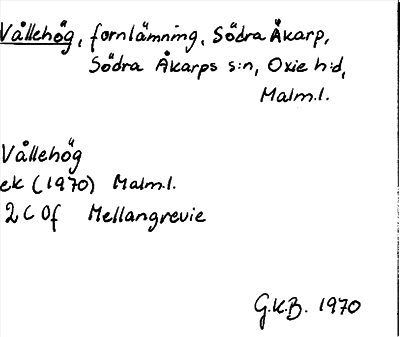 Vållehög, fornlämning, Södra Åkarp,
Södra Åkarps s:n, Oxie h:d,
Malm.l.
Vållehög
ek (1970) Malm.l.
2 C Of Mellangrevie
G.K.B. 1970